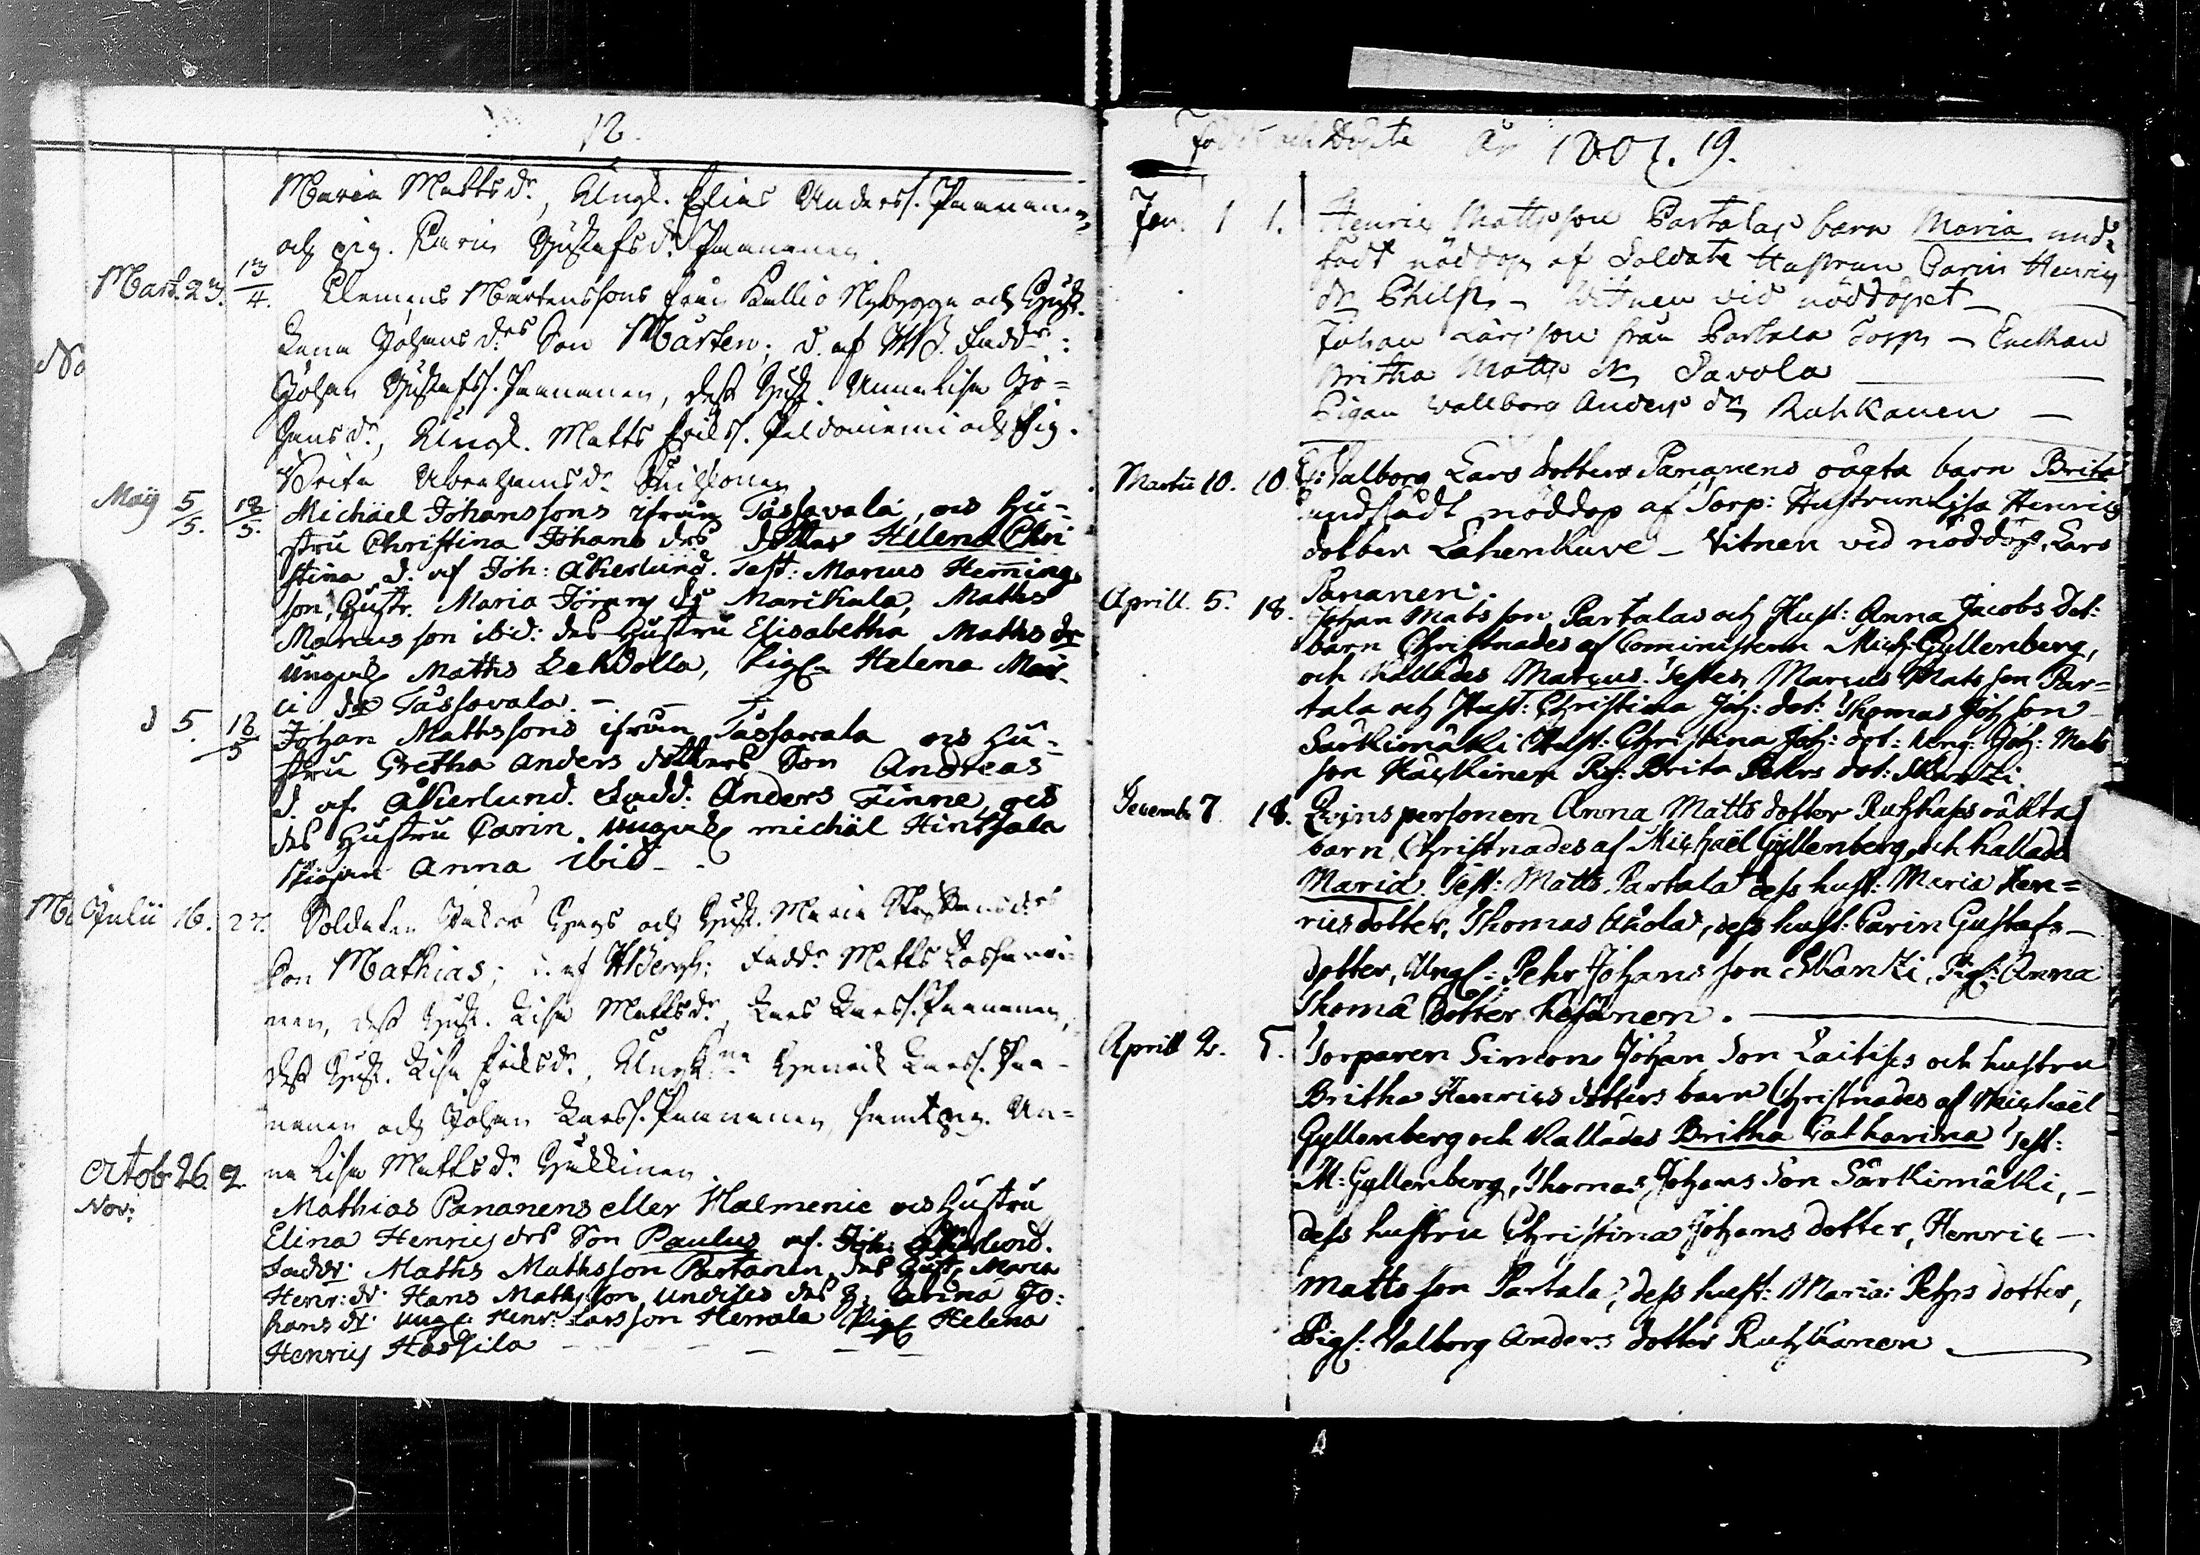 12.
Maria Mattsdr, Ungk. Elias Anderss. Paananen
och pig. Karin Gustafsdr Paananen.
Mart. 23. 13/4. Clemens Mårtenssons från Kallio Nybygge och Hust.
Lena Johansdrs Son Mårten; d. af Faddr:
Johan Gustafss. Paananen, dess Hust. Anna Lisa Jo=
hansdr, Ungk. Matts Erikss. Peldoniemi och Pig.
Brita Abrahamsdr
Maij 5/5. 18/5. Michäel Johanssons ifrån Tassavala, ocs Hu-
stru Christina Johans drs dotter Helena Chri
stina d. af Joh: Åkerlund. Test: Marcus Hemming
son, Hustr. Maria Jörans dr Marikula, Maths
Marcus son ibid: des Hustru Elisabetha Maths dr
ungcal Maths Lehdolla, Pigan Helena Mar-
ci dr Tassavala. —
d 5. 18/5 Johan Mathssons ifrån Tassavala ocs Hu-
stru Gretha Anders dotters Son Andreas
d. af Åkerlund. Fadd: Anders Finne, ocs
des Hustru Carin. ungcal michäl Hintsala
Pigan Anna ibid —
Julii 16. 27. Soldaten Jakob och Hust. Maria
Son Mathias; d. af Faddr Matts
nen, dess Hust. Lisa Mattsdr, Lars Larss. Paananen,
dess Hust. Lisa Eriksdr, Henrik Larss. Paa-
nanen och Johan Larss. Paananen, samt pig. An=
na Lisa Mattsdr Hukkinen
Octob 26. 2. Nov: Mathias Pananens eller Halmenie ocs Hustru
Elina Henrics drs Son Paulus af. Joh: Åkerlund.
Faddr: Maths Mathsson Partanen, des Hustr. Maria
Henr: dr Hans Mathsson undises des h. Carina Jo:
hans dr ungc. Henr: Larsson Herrala Pig Helena
Henrics Hassila — — — — —
Födde och Döpte År 1807. 19.
Jan. 1 1. Henric Mattsson Partalas barn Maria und:
födt nöddöpt af Soldate Hustrun Carin Henrics
dr Philp — Witnen vid nöddöpet —
Johan Larsson från Partala Torp — Enckan
Britha Matts dr Savola —
Pigan Vallborg Anders dr Ruhkanen —
Martii 10. 10. Valborg Lars dotters Pananens oägta barn Brita
undfådt nöddop af Torp: Hustrun Lisa Henrics
dotter Lahenkave — Vitnen vid nöddop. Lars
Pananen.
Aprill. 5. 18. Johan Matsson Partalas och Hust: Anna Jacobs dot:
barn Christnades af Cominstern Mich: Gyllenberg,
och Kallades Marcus. Testes, Marcus Matsson Par=
tala och Hust: Christina Joh: dot: Thomas Joh son
Särkimäki Hust: Christina Joh: dot: ung: Joh: Mats
son Häckinen Pig: Brita Pehrs dot: Skantzi.
Decemb: 7. 18. Qvinspersonen Anna Matts dotter Ruhkas oäkta
barn, Christnades af Michaël Gyllenberg och Kallades
Maria. Test: Matts Partala dess hust: Maria Hen=
rics dotter, Thomas Ahola, dess hust: Carin Gustafs —
dotter, Ungk: Pehr Johans son Skantzi, Pig: Anna
Thomä dotter Kesänen. —
Aprill 2. 5. Torparen Simon Johan Son Laitises och hustru
Britha Henrics dotters barn Christnades af Michaël
Gyllenberg och Kallades Britha Catharina Test:
M: Gyllenberg, Thomas Johans Son Särkimäki, —
dess hustru Christina Johans dotter, Henric —
Matts son Partala, dess hust: Maria: Pehrs dotter,
Pig: Valborg Anders dotter Ruhkanen. —